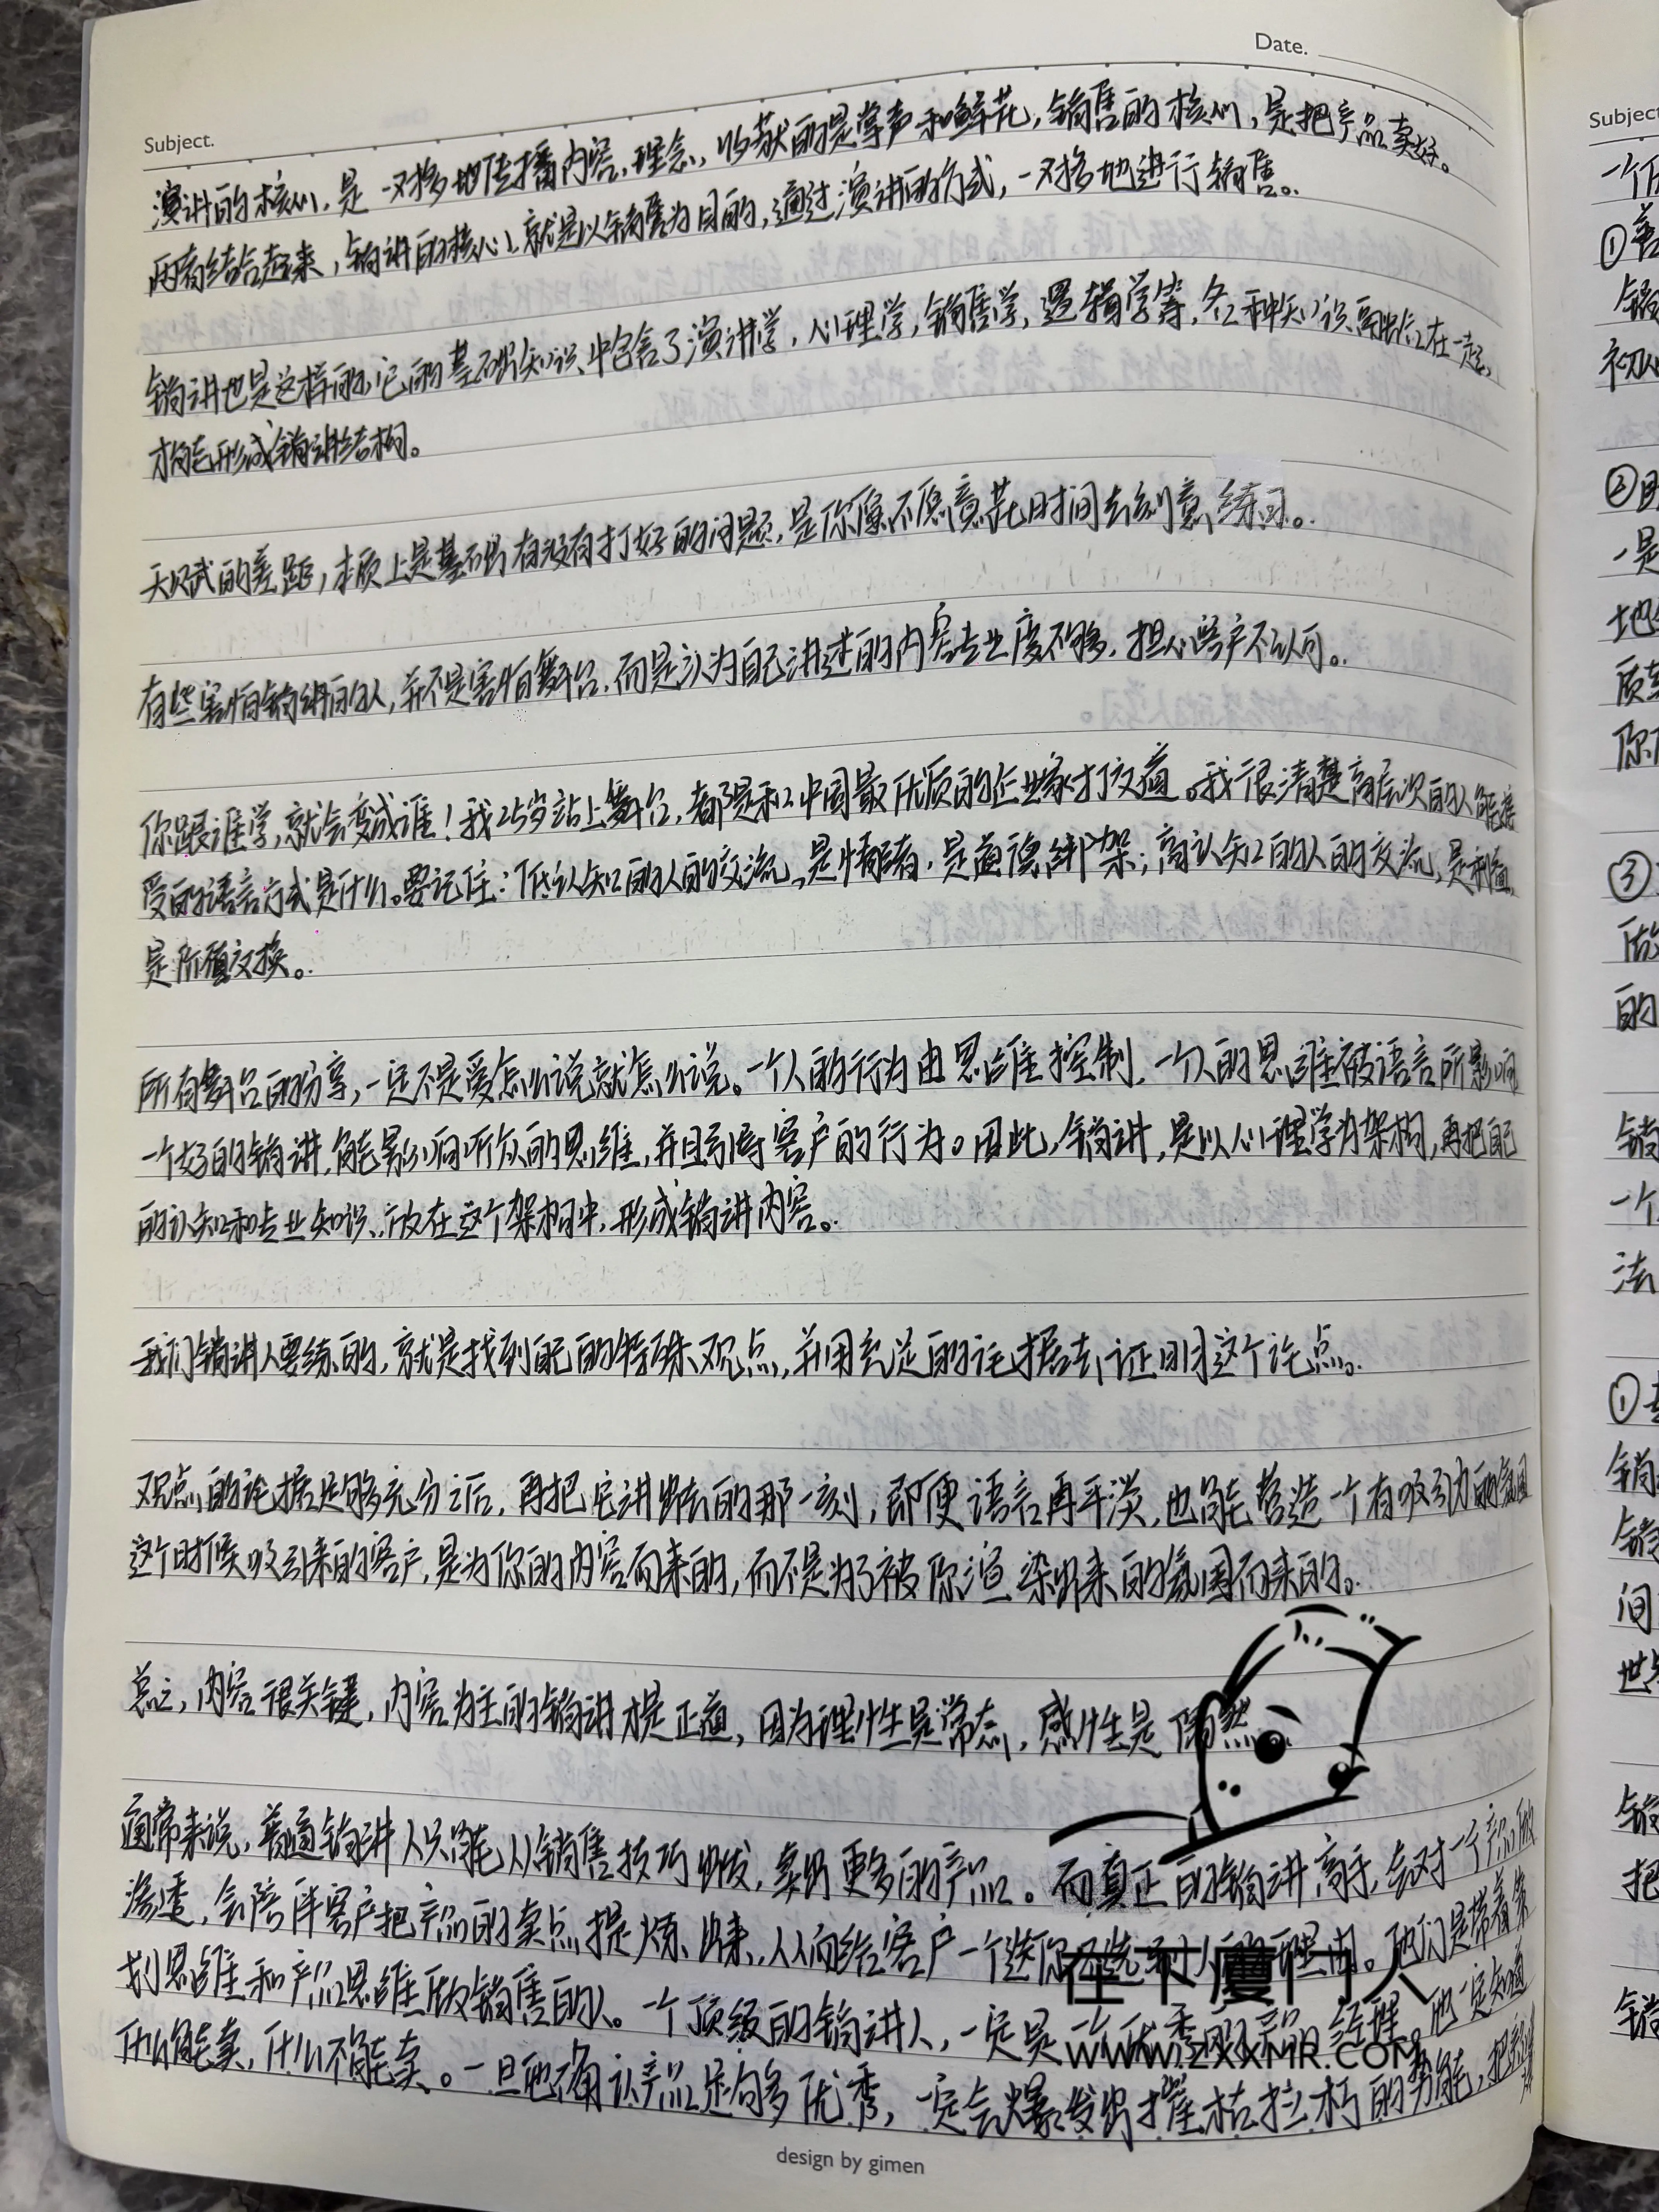 Date.
Subject.
演讲的核心,是一对多地传播内容,理念,收获的是掌声和鲜花,销售的核心,是把产品卖好。
两者结合起来,销讲的核心,就是以销售为目的,通过演讲的方式,一对多地进行销售。
销讲也是这样的,它的基础知识中包含了演讲学,心理学,销售学,逻辑学等,各种知识在一起,
才能形成销讲结构。
天赋的差距,本质上是基础有没有打好的问题,是你愿不愿意花时间去刻意练习。
有些害怕销讲的人,并不是害怕舞台,而是认为自己讲述的内容专业度不够,担心客户不认可。
你跟谁学,就会变成谁!我25岁站上舞台,都是和中国最优质的企业家打交道。我很清楚高层次的人能接
受的语言方式是什么。要记住:低认知的人的交流,是情绪,是道德绑架;高认知的人的交流,是利益,
是价值交换。
所有舞台的分享,一定不是爱怎么说就怎么说。一个人的行为由思维控制,一个人的思维被语言所影响
一个好的销讲,能影响听众的思维,并且引导客户的行为。因此,销讲,是以心理学为架构,再把自己
的认知和专业知识,放在这个架构中,形成销讲内容。
我们销讲人要练的,就是找到自己的特殊观点,并用充足的论据去证明这个论点。
观点的论据足够充分之后,再把它讲出去的那一刻,即便语言再平淡,也能营造一个有吸引力的氛围
这个时候吸引来的客户,是为你的内容而来的,而不是为了被你渲染出来的氛围而来的。
总之,内容很关键,内容为主的销讲才是正道,因为理性是常态,感性是偶然
通常来说,普通销讲人只能从销售技巧出发,卖出更多的产品。而真正的销讲高手,会对一个产品做
渗透,会陪伴客户把产品的卖点提炼出来,从而给客户一个选你理由。他们是带着策
划思维和产品思维做销售的人。一个顶级的销讲人,一定是一个优秀的产品经理。他一定知道
什么能卖,什么不能卖。一旦他确认产品足够多优秀,一定会爆发出摧枯拉朽的势能,把
在下厦门人
WWW.ZXXMR.COM
design by gimen
Subject
一个
①
销
②
一是
地
质
你
③
做
的
销
一个
法
①
销
销
间
世
销
把
销